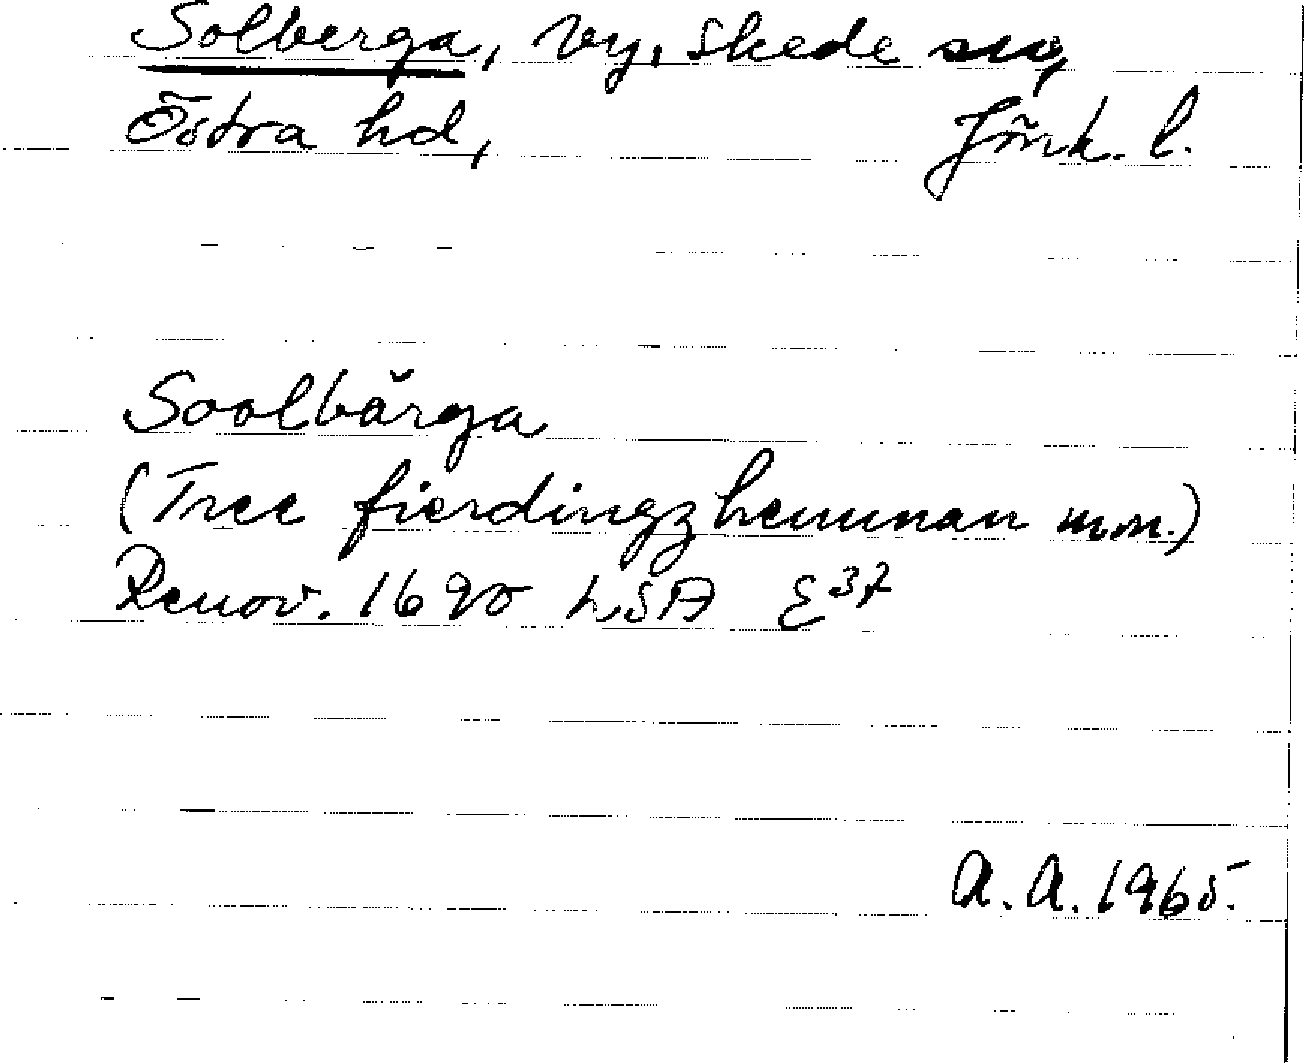 Solberga, by, Skede sn,
Östra hd, Jönk. l.
Soolbärga
(Tree fierdingzhemman m.m.)
Renov. 1690 LSA E37
A.A. 1965.